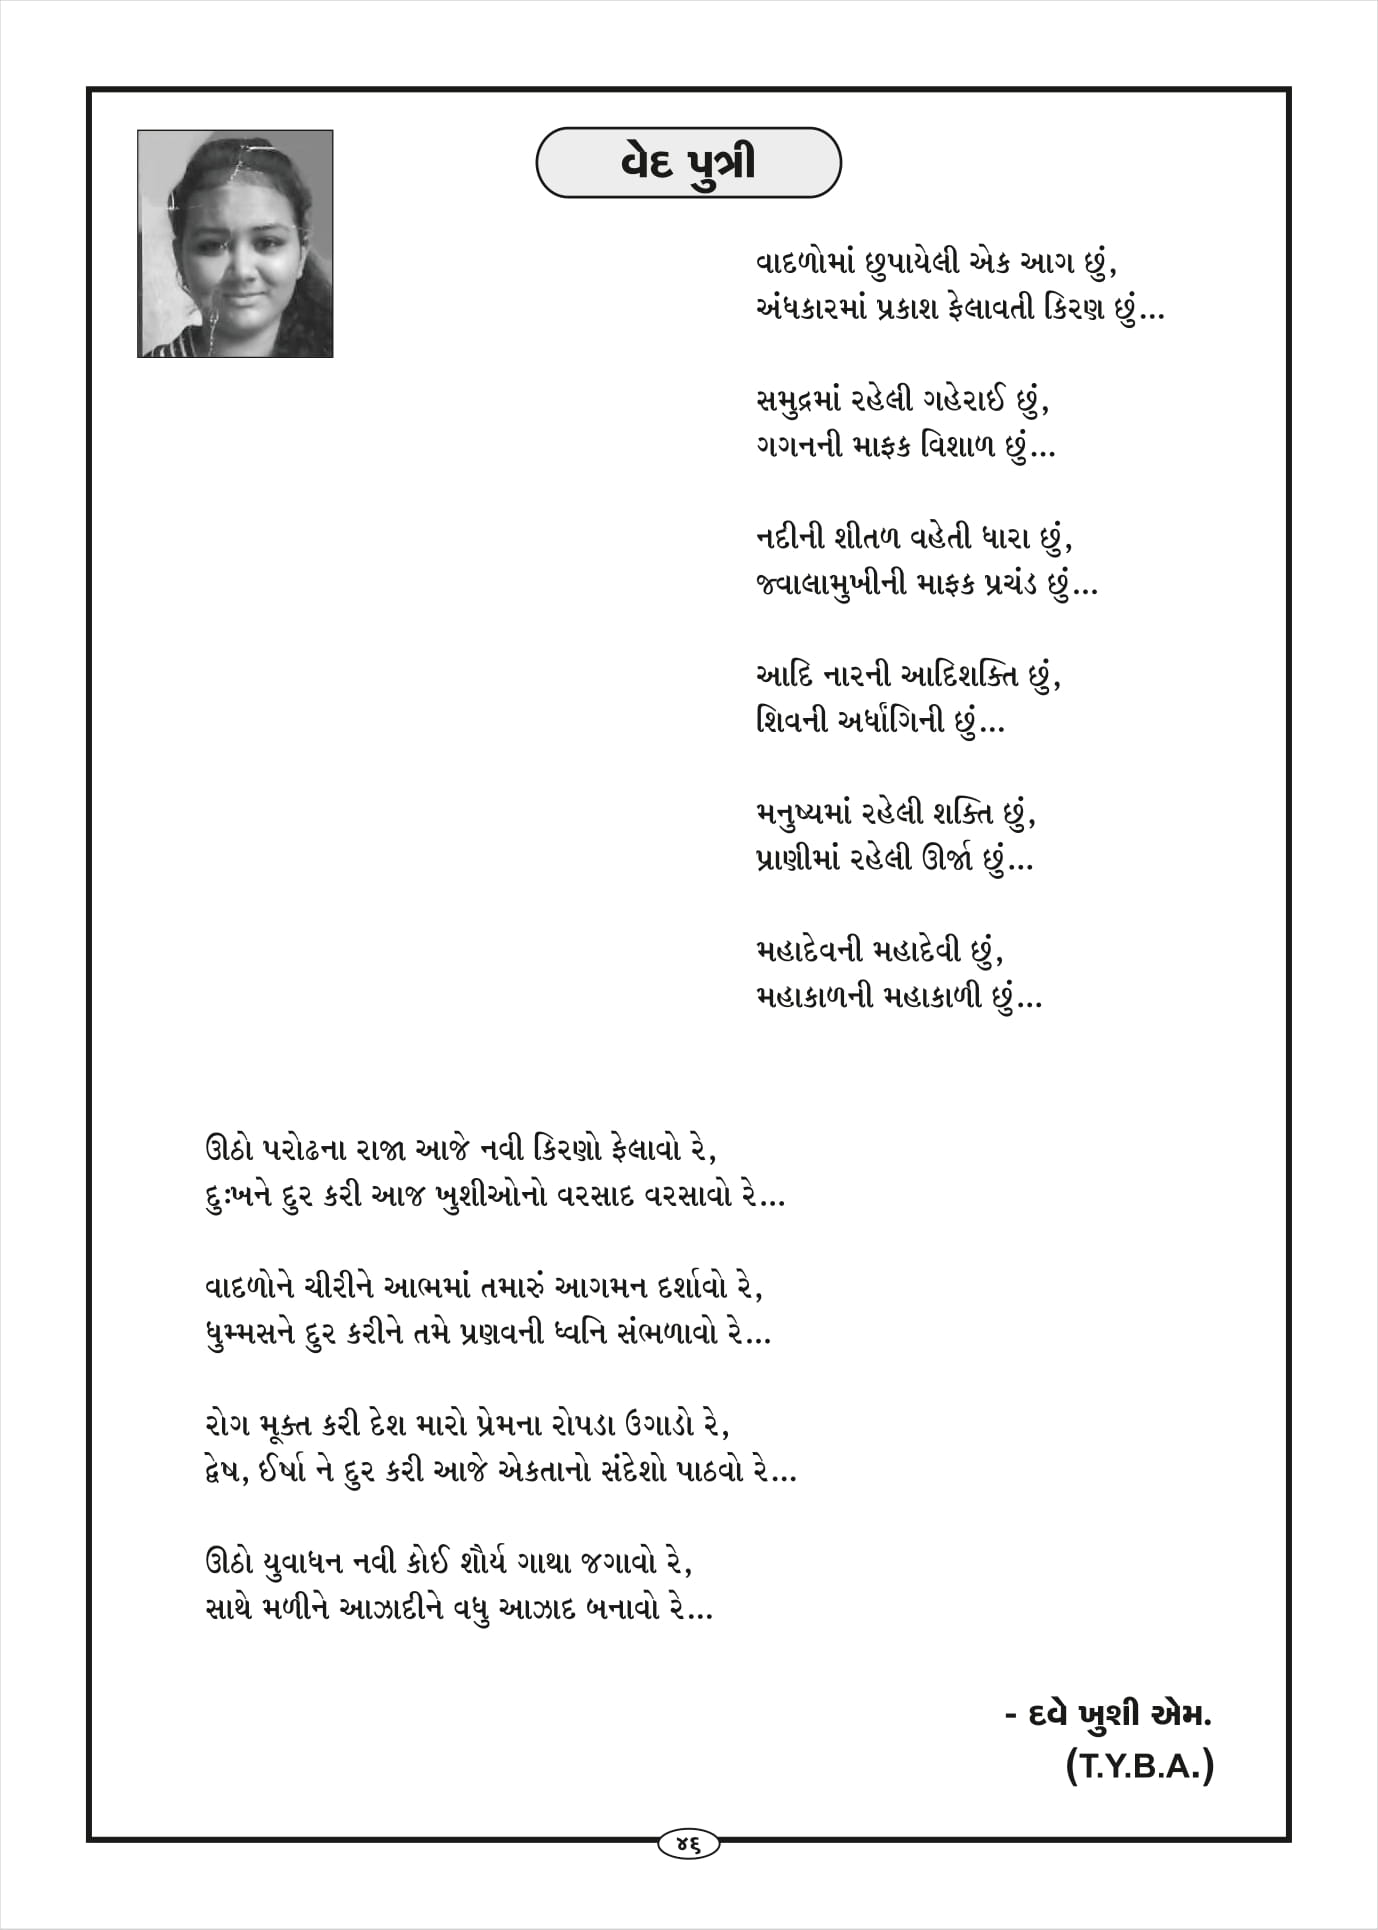 વેદ પુત્રી
વાદળોમાં છુપાયેલી એક આગ છું,
અંધકારમાં પ્રકાશ ફેલાવતી કિરણ છું...
સમુદ્રમાં રહેલી ગહેરાઈ છું,
ગગનની માફક વિશાળ છું...
નદીની શીતળ વહેતી ધારા છું,
જ્વાલામુખીની માફક પ્રચંડ છું...
આદિ નારની આદિશક્તિ છું,
શિવની અર્ધાંગિની છું...
મનુષ્યમાં રહેલી શક્તિ છું,
પ્રાણીમાં રહેલી ઊર્જા છું...
મહાદેવની મહાદેવી છું,
મહાકાળની મહાકાળી છું...
ઊઠો પરોઢના રાજા આજે નવી કિરણો ફેલાવો રે,
દુઃખને દુર કરી આજ ખુશીઓનો વરસાદ વરસાવો રે...
વાદળોને ચીરીને આભમાં તમારું આગમન દર્શાવો રે,
ધુમ્મસને દુર કરીને તમે પ્રણવની ધ્વનિ સંભળાવો રે...
રોગ મૂક્ત કરી દેશ મારો પ્રેમના રોપડા ઉગાડો રે,
દ્વેષ, ઈર્ષા ને દુર કરી આજે એકતાનો સંદેશો પાઠવો રે...
ઊઠો યુવાધન નવી કોઈ શૌર્ય ગાથા જગાવો રે,
સાથે મળીને આઝાદીને વધુ આઝાદ બનાવો રે...
- દવે ખુશી એમ.
(T.Y.B.A.)
૪૬